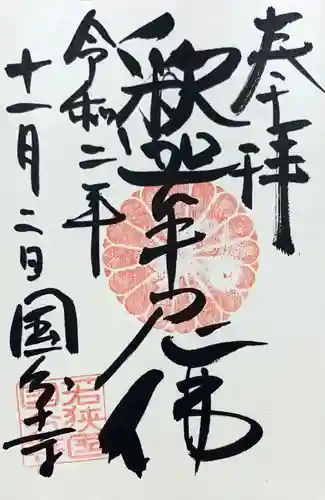 奉拝
釈迦牟尼佛
令和二年
十一月二日
国分寺
若狭国
国分寺